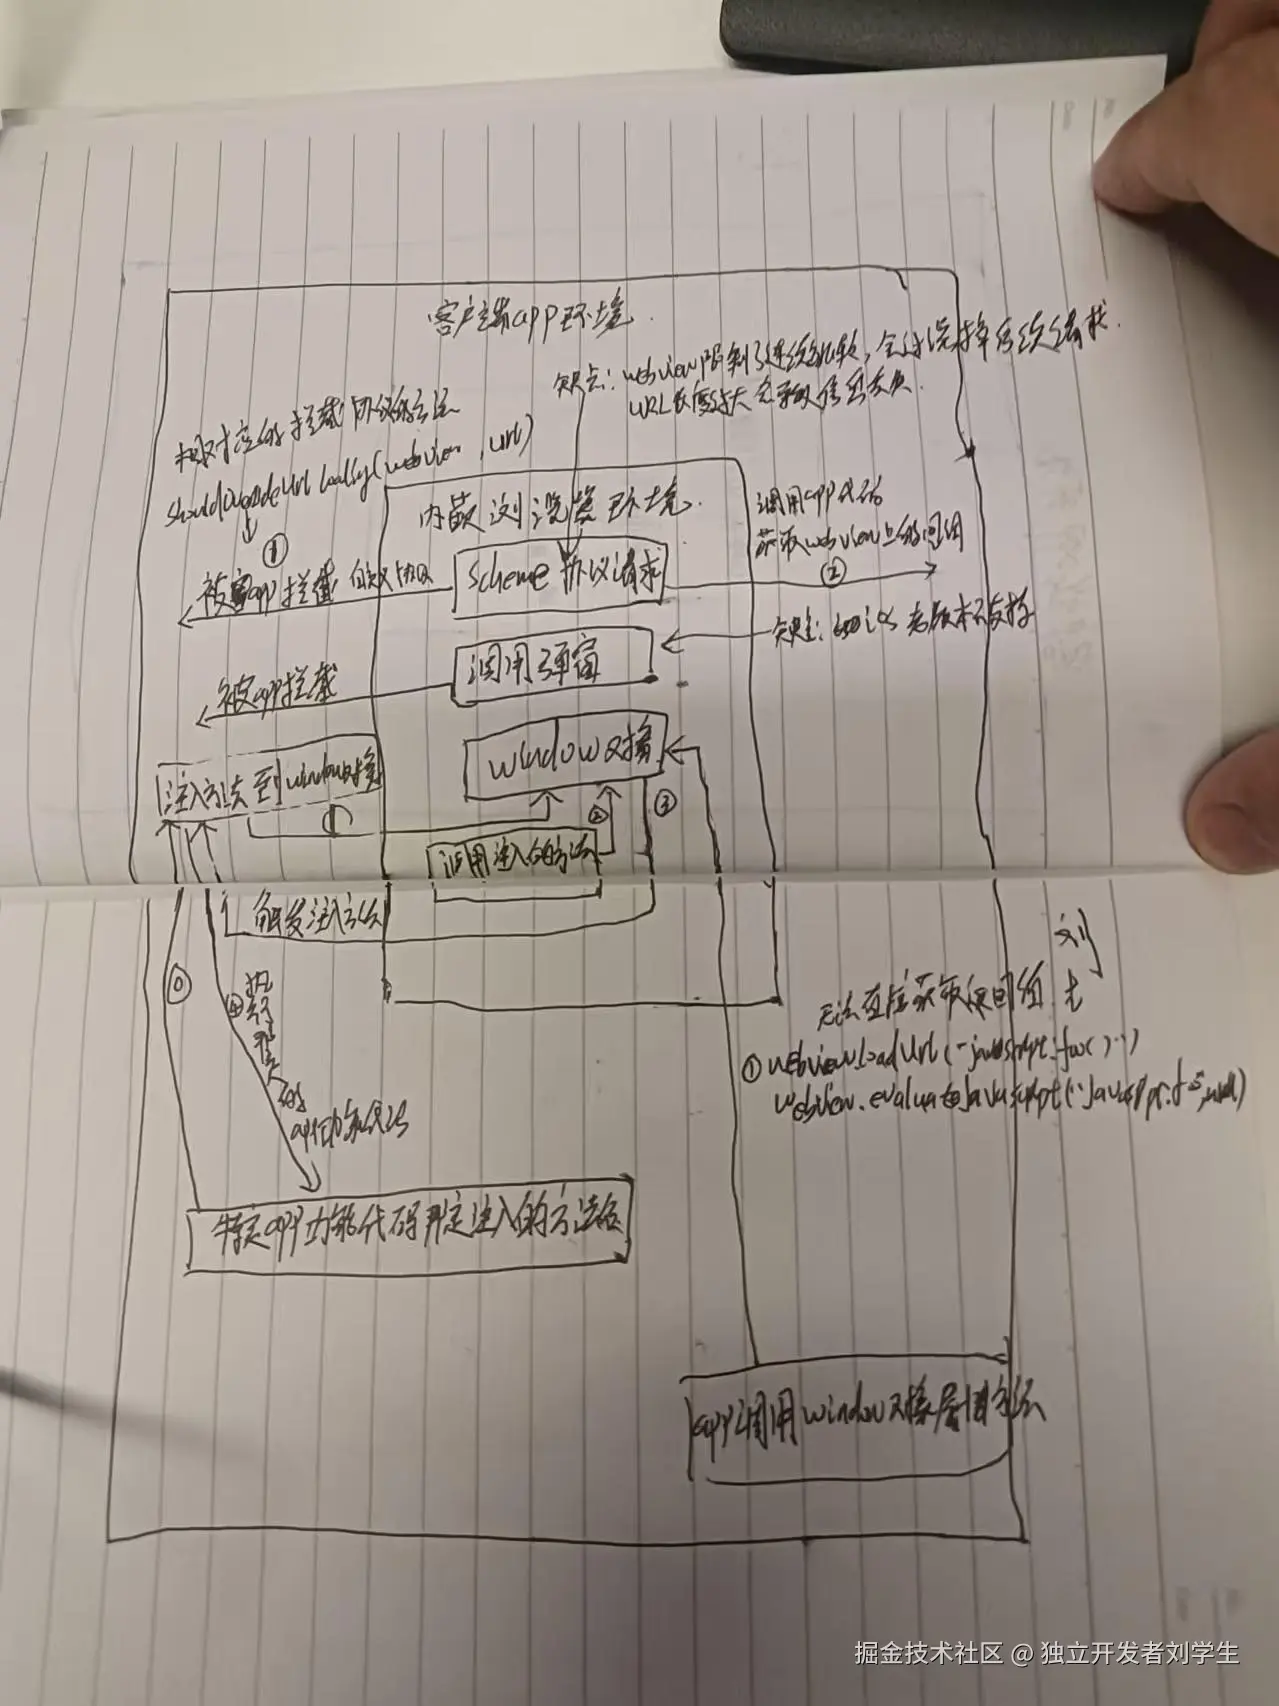 客户端app环境.
缺点: webview限制了连续跳转, 会过滤掉后续跳
URL长度过大会导致信息丢失.
相对应的拦截协议的方法
shouldOverrideUrlLoading(webview, url)
内嵌浏览器环境.
调用app代码
获取webview上的
①
被app拦截 自定义协议
Scheme 协议请求
②
缺点: 老版本不支持
调用弹窗
被app拦截
window对象
注入方法到window对象
①
②
③
调用注入的方法
触发注入方法
⓪
④
执行
的
app代码
无法直接获取返回值
①webview.loadUrl("javascript:foo()")
webview.evaluateJavascript("javascript:
特定app功能代码 绑定注入的方法名
app调用window对象属性方法
掘金技术社区 @ 独立开发者刘学生